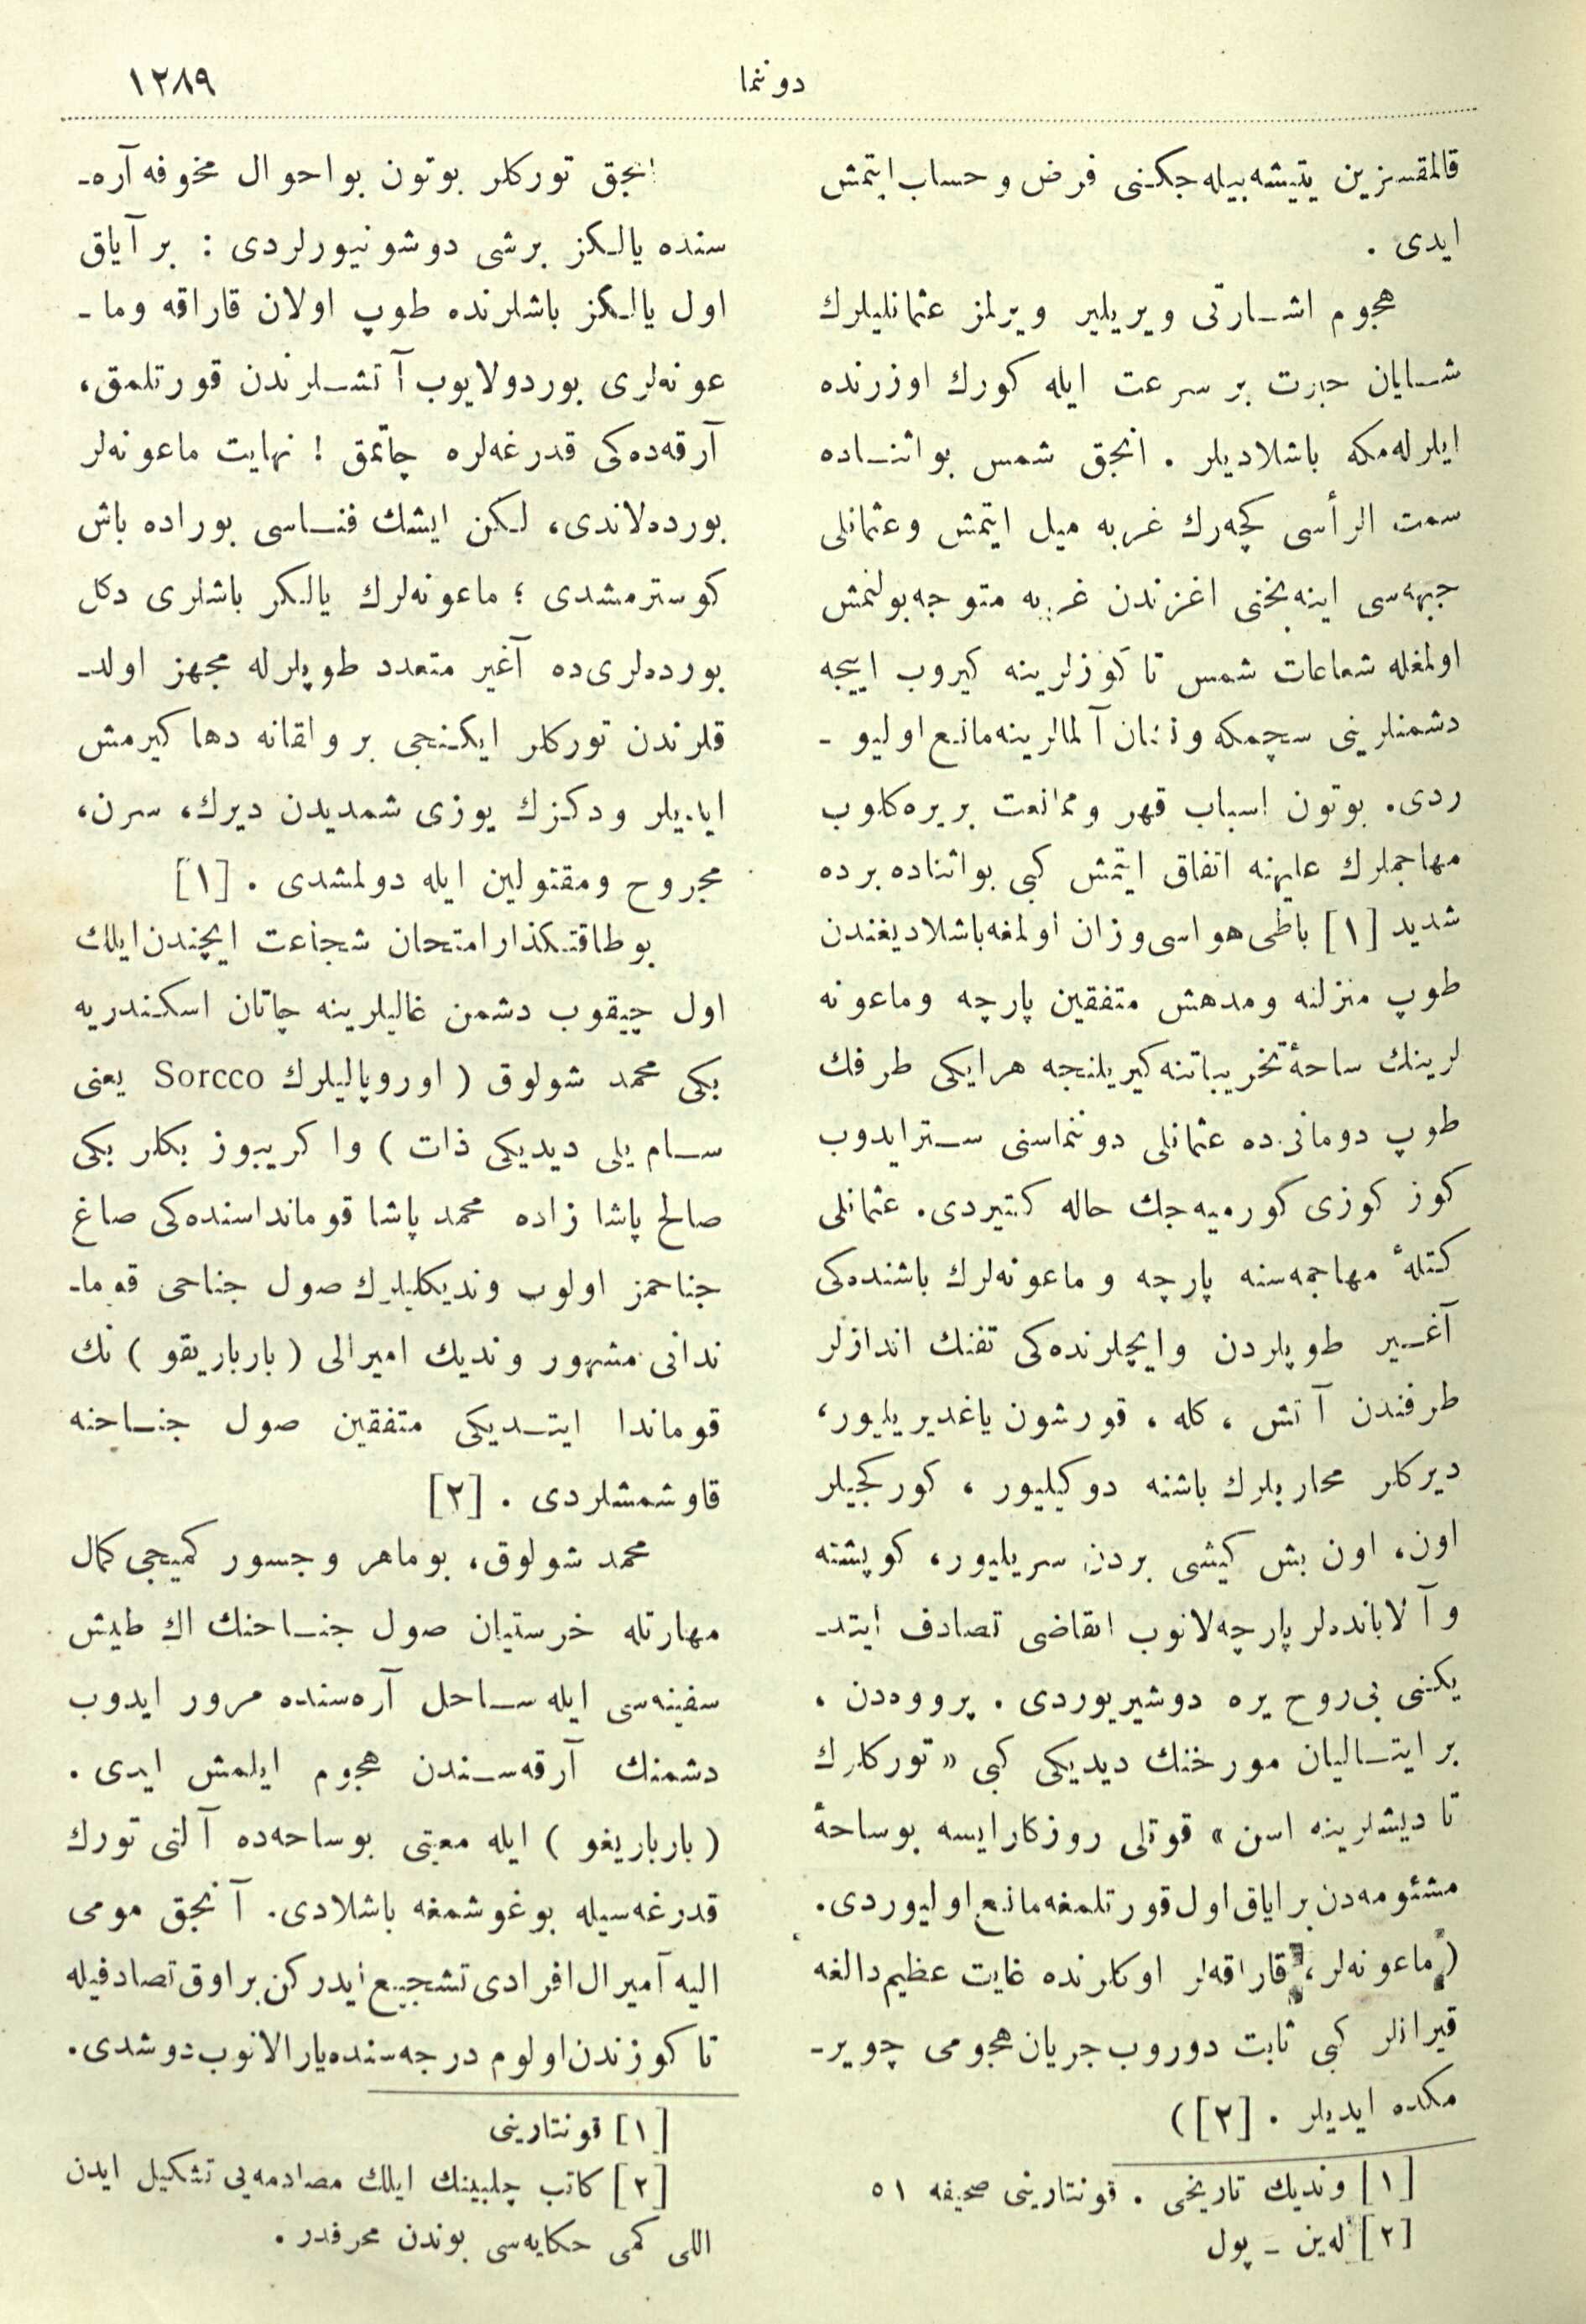 دوننما
١٢٨٩
قالمقسزین یتیشه‌بیله‌جكنی فرض و حساب ایتمش
ایدی .
هجوم اشـارتی ویریلیر ویرلمز عثمانلیلرك
شـایان حیرت بر سرعت ایله كورك اوزرنده
ایلرله‌مكه باشلادیلر . انجق شمس بو اثنـاده
سمت الرأسی كچه‌رك غربه میل ایتمش و عثمانلی
جبهه‌سی اینه‌بختی اغزندن غربه متوجه بولنمش
اولمغله شعاعات شمس تا كوزلرینه كیروب اییجه
دشمنلرینی سچمكه و نشان آلمالرینه مانع اولیو ـ
ردی. بوتون اسباب قهر و ممانعت بر یره كلوب
مهاجملرك علیهنه اتفاق ایتمش كبی بو اثناده برده
شدید [١] باطی هواسی وزان اولمغه باشلادیغندن
طوپ منزلنه و مدهش متفقین پارچه و ماعونه
لرینك ساحهٔ تخریباتنه كیریلنجه هر ایكی طرفك
طوپ دومانی ده عثمانلی دوننماسنی سـتر ایدوب
كوز كوزی كورمیه‌جك حاله كتیردی. عثمانلی
كتلهٔ مهاجمه‌سنه پارچه و ماعونه‌لرك باشنده‌كی
آغـیر طوپلردن و ایچلرنده‌كی تفنك اندازلر
طرفندن آتش ، كله ، قورشون یاغدیریلیور،
دیركلر محاربلرك باشنه دوكیلیور ، كوركجیلر
اون، اون بش كیشی بردن سریلیور، كوپشته
و آلابانده‌لر پارچه‌لانوب انقاضی تصادف ایتد‌ـ
یكنی بی‌روح یره دوشیریوردی . پرووه‌دن ،
بر ایتـالیان مورخنك دیدیكی كبی « توركلرك
تا دیشلرینه اسن » قوتلی روزكار ایسه بو ساحهٔ
مشئومه‌دن بر ایاق اول قورتلمغه مانع اولیوردی.
( ماعونه‌لر، قاراقه‌لر اوكلرنده غایت عظیم دالغه
قیرانلر كبی ثابت دوروب جریان هجومی چویر‌ـ
مكده ایدیلر . [٢])
[١] وندیك تاریخی . قونتارینی صحیفه ٥١
[٢] له‌ین ـ پول
انجق توركلر بوتون بو احوال مخوفه آره‌ـ
سنده یالـكز برشی دوشونیورلردی : بر آیاق
اول یالـكز باشلرنده طوپ اولان قاراقه وما ـ
عونه‌لری بوردولایوب آتشـلرندن قورتلمق،
آرقه‌ده‌كی قدرغه‌لره چاتمق ! نهایت ماعونه‌لر
بورده‌لاندی، لـكن ایشك فنـاسی بوراده باش
كوسترمشدی ؛ ماعونه‌لرك یالـكز باشلری دكل
بورده‌لری ده آغیر متعدد طوپلرله مجهز اولد‌ـ
قلرندن توركلر ایكنجی بر واقانه دها كیرمش
ایدیلر و دكزك یوزی شمدیدن دیرك، سرن،
مجروح و مقتولین ایله دولمشدی . [١]
بو طاقتكذار امتحان شجاعت ایچندن ایلك
اول چیقوب دشمن غالیلرینه چاتان اسكندریه
بكی محمد شولوق ( اوروپالیلرك Sorcco یعنی
سـام یلی دیدیكی ذات ) وا كریبوز بكلر بكی
صالح پاشا زاده محمد پاشا قومانداسنده‌كی صاغ
جناحمز اولوب وندیكلیلرك صول جناحی قوما‌ـ
ندانی مشهور وندیك امیرالی ( بارباریقو ) نك
قوماندا ایتـدیكی متفقین صول جنـاحنه
قاوشمشلردی . [٢]
محمد شولوق، بو ماهر و جسور كمیجی كمال
مهارتله خرستیان صول جنـاحنك اك طیش
سفینه‌سی ایله سـاحل آره‌سنده مرور ایدوب
دشمنك آرقه‌سـندن هجوم ایلمش ایدی .
( بارباریغو ) ایله معیتی بو ساحه‌ده آلتی تورك
قدرغه‌سیله بوغوشمغه باشلادی. آنجق مومی
الیه آمیرال افرادی تشجیع ایدركن بر اوق تصادفیله
تا كوزندن اولوم درجه‌سنده یارالانوب دوشدی.
[١] قونتارینی
[٢] كاتب چلبینك ایلك مصادمه‌یی تشكیل ایدن
اللی كمی حكایه‌سی بوندن محرفدر .